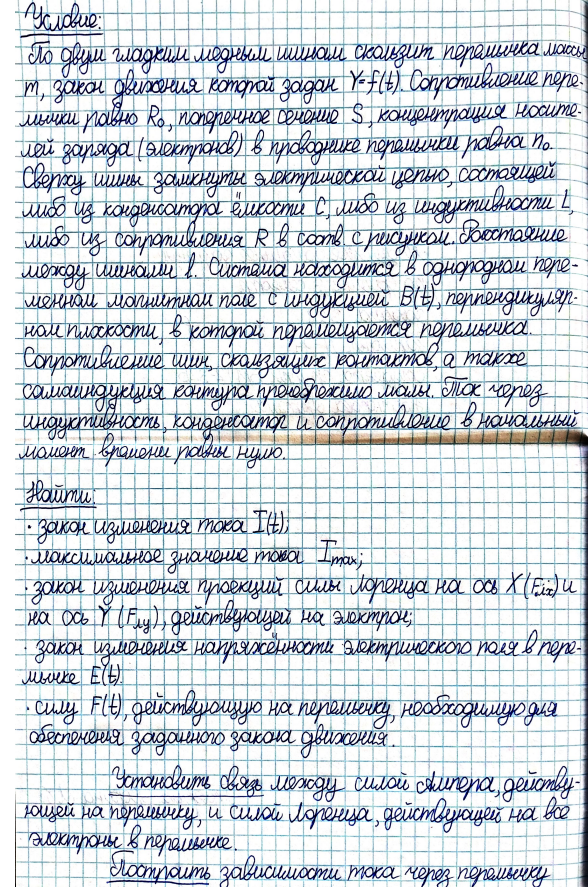 Условие:
По двум гладким медным шинам скользит перемычка массы
m, закон движения которой задан Y=f(t). Сопротивление пере-
мычки равно R₀, поперечное сечение S, концентрация носите-
лей заряда (электронов) в проводнике перемычки равна n₀.
Сверху шины замкнуты электрической цепью, состоящей
либо из конденсатора ёмкости C, либо из индуктивности L,
либо из сопротивления R в соотв. с рисунком. Расстояние
между шинами l. Система находится в однородном пере-
менном магнитном поле с индукцией B(t), перпендикуляр-
ном плоскости, в которой перемещается перемычка.
Сопротивление шин, скользящих контактов, а также
самоиндукция контура пренебрежимо малы. Ток через
индуктивность, конденсатор и сопротивление в начальный
момент времени равны нулю.
Найти:
· закон изменения тока I(t);
· максимальное значение тока Imax;
· закон изменения проекций силы Лоренца на ось X (Fлx) и
на ось Y (Fлy), действующей на электрон;
· закон изменения напряжённости электрического поля в пере-
мычке E(t).
· силу F(t), действующую на перемычку, необходимую для
обеспечения заданного закона движения.
Установить связь между силой Ампера, действу-
ющей на перемычку, и силой Лоренца, действующей на все
электроны в перемычке.
Построить зависимости тока через перемычку